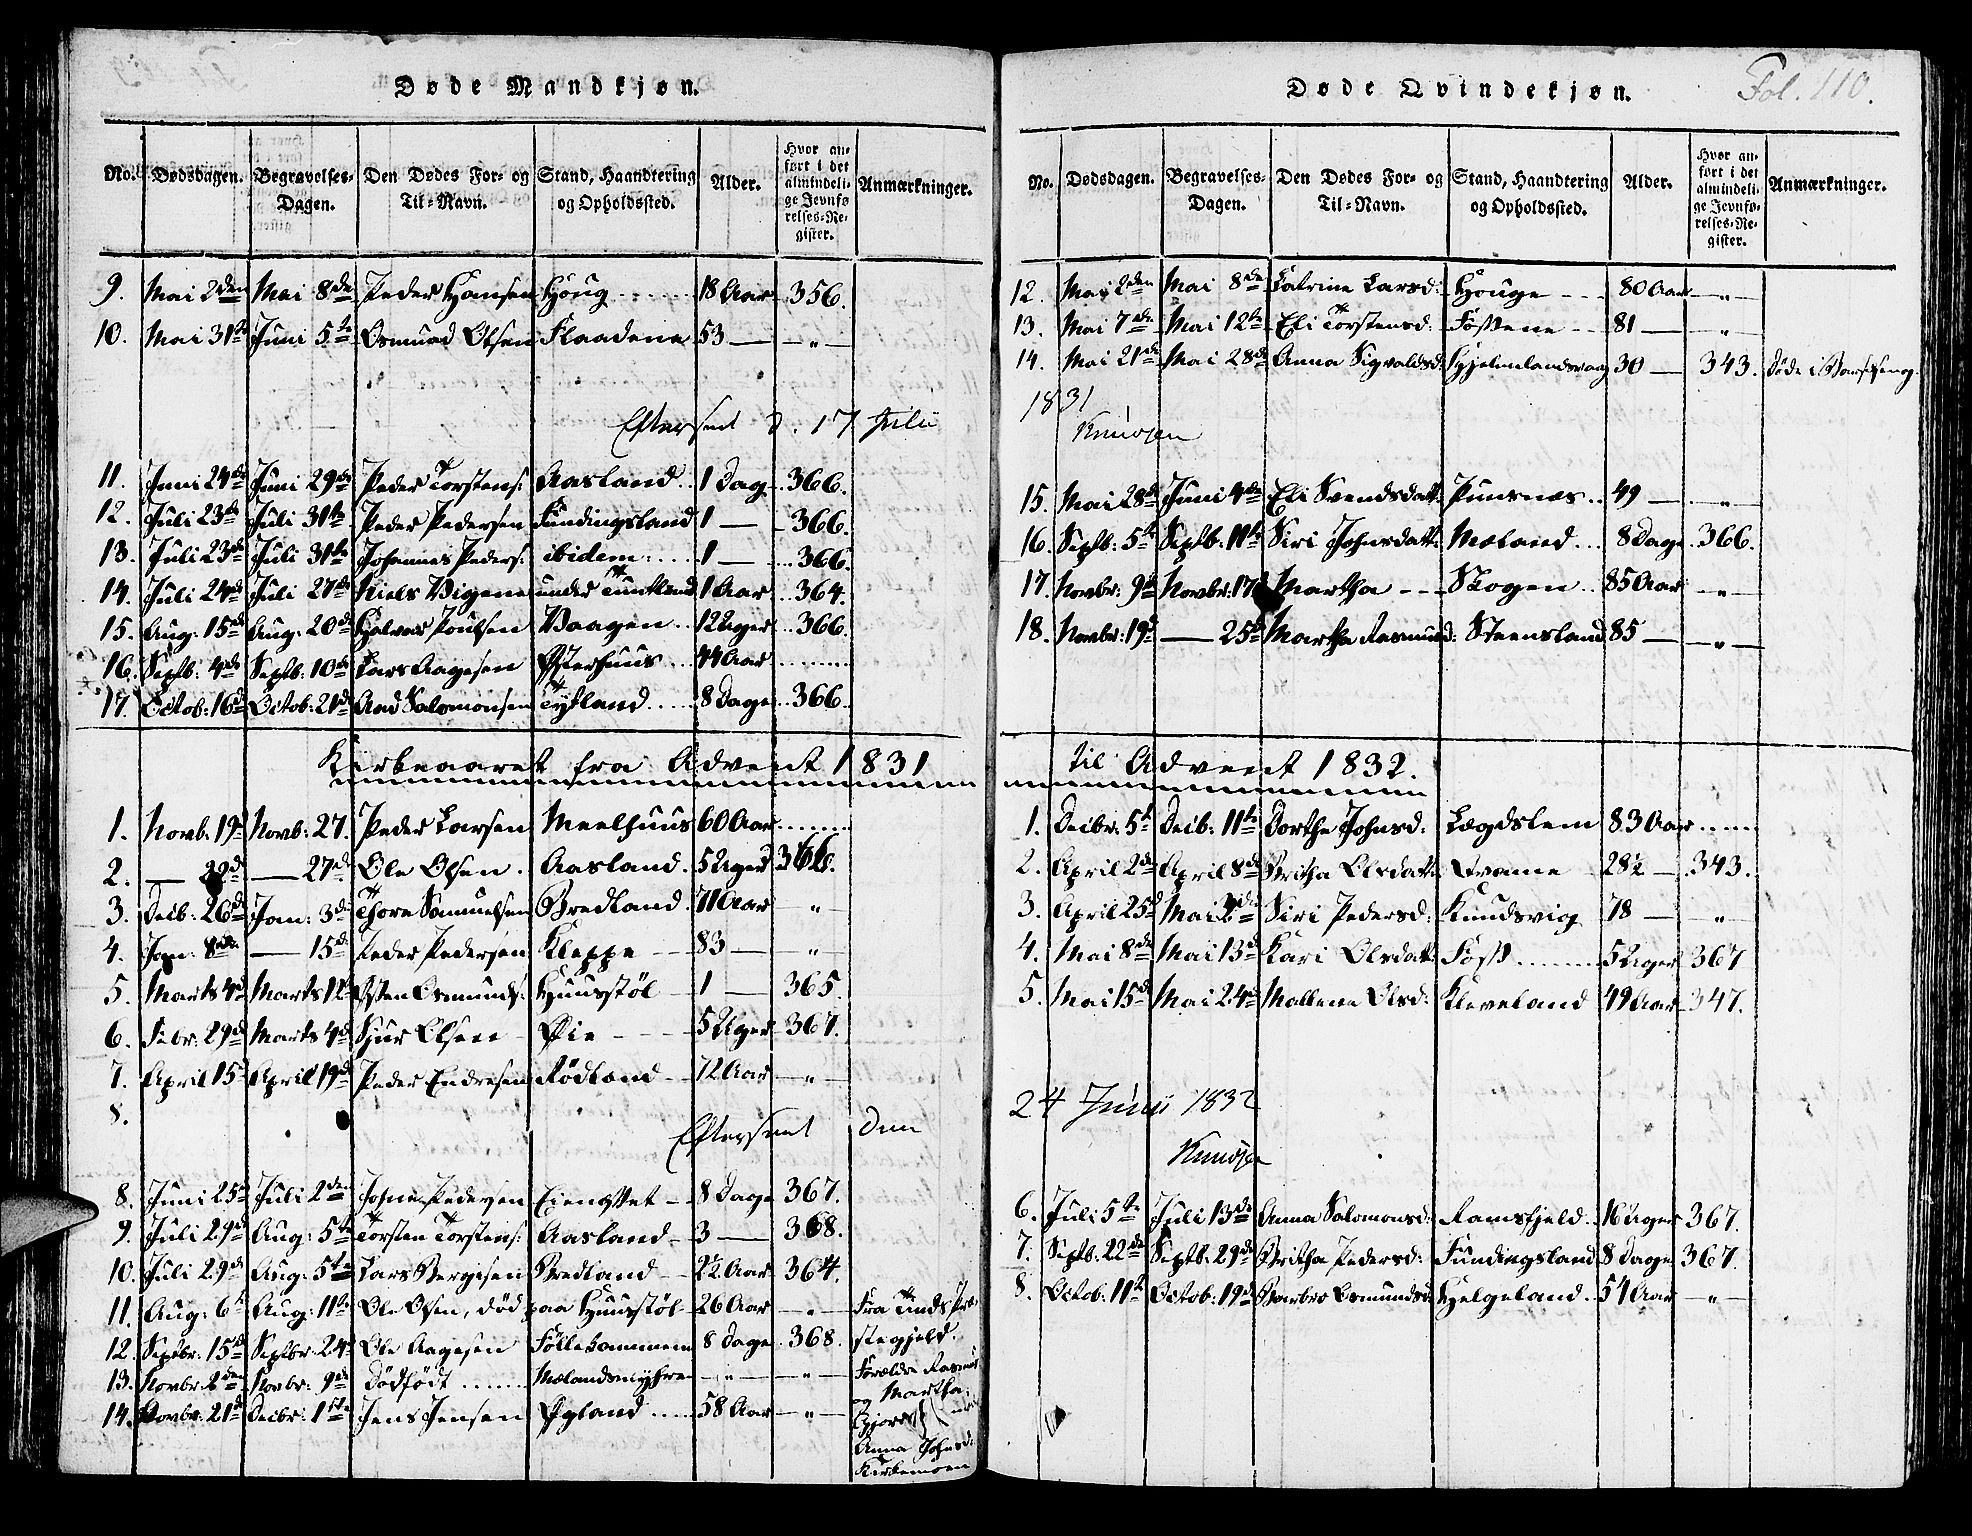 Døde Mandkjøn.
No. Dødsdagen. Begravelses-Dagen. Den Dødes For- og Til-Navn. Stand, Haandtering og Opholdssted. Alder. Hvor anført i det almindelige Jevnførelses-Register. Anmærkninger.
9. Mai 2den Mai 8de Peder Hansen Houg 18 Aar 356.
10. Mai 31te Juni 5te Osmund Olsen Flaadene 53 — „ —
Efterseet d. 17 Julii
11. Juni 24de Juni 29de Peder Torstens: Aasland 1 Dag 366.
12. Juli 23de Juli 31te Peder Pedersen Fundingsland 1 — 366.
13. Juli 23de Juli 31te Johannes Peders: ibidem 1 — 366.
14. Juli 24de Juli 27de Niels Vigene under Tuntland 1 Aar 364.
15. Aug: 15de Aug: 20de Halvor Poulsen Vaagen 12 Uger 366.
16. Septb: 4de Septb: 10de Lars Aagesen Østerhuus 44 Aar
17. Octob: 16d Octob: 21d And Salomonsen Tytland 8 Dage 366.
Kirkeaaret fra Advent 1831
1. Novb. 19d Novb: 27. Peder Larsen Meelhuus 60 Aar
2. — 22d — 27d Ole Olsen. Aasland. 5 Uger 366.
3. Decb: 26d Jan: 3d Thore Samuelsen Bredland 71 Aar — „ —
4. Jan: 8de — 15d Peder Pedersen Kleppe 83 — „ —
5. Marts 4d Marts 12t Østen Osmunds: Huusstöl 1 — 365.
6. Febr: 29d Marts 4d Sjur Olsen Øie 5 Uger 367.
7. April 15d April 19d Peder Endresen Rödland 72 Aar — „ —
8.
Eftersеet den
8. Juni 25d Juli 2den Johne Pedersen Eiengstvet 8 Dage 367.
9. Juli 29d Aug: 5te Torsten Torstens: Aasland 3 — 368.
10. Juli 29d Aug: 5te Lars Bergesen Bredland 2½ Aar 364.
11. Aug: 6t Aug: 11te Ole Olsen, död paa Huusstöl 26 Aar — „ — Fra Tinds Præ-
12. Septbr: 15d Septbr: 24d Ole Aagesen Föllekammen 8 Dage 368. stegjeld.
13. Novbr 2den Novbr: 9de Dödfödt Mælandsmyhren — „ — — „ — Forældre Rasmus
og Martha
14. Novbr: 21d Decbr: 1ste Jens Jensen Øgland 58 Aar — „ —
Anna Johnsd:
Kirkemoen
Døde Qvindekjøn. Fol. 110.
No. Dødsdagen. Begravelses-Dagen. Den Dødes For- og Til-Navn. Stand, Haandtering og Opholdssted. Alder. Hvor anført i det almindelige Jevnførelses-Register. Anmærkninger.
12. Mai 2den Mai 8de Catrine Larsd: Houge 80 Aar — „ —
13. Mai 7de Mai 12te Eli Torstensd: Fossene 81 — „ —
14. Mai 21de Mai 28de Anna Sigvaldsd: Hjelmlandsvag 30 — 343. Döde i Barselseng.
1831
Knudsen
15. Mai 28de Juni 4de Eli Svendsdatt: Punsnæs 49 — „ —
16. Septb: 5te Septb: 11te Siri Johnsdatt: Mæland 8 Dage 366.
17. Novbr: 9de Novbr: 17d Martha Skogen 85 Aar — „ —
18. Novbr: 19d — 25d Martha Rasmusd: Steensland 85 — „ —
til Advent 1832.
1. Decbr: 5t Decb: 11te Dorthe Johnsd: Lægdslem 83 Aar
2. April 2de April 8de Britha Olsdatt: Tvame 28½ — 343.
3. April 25d Mai 2den Siri Pedersd: Knudsvig 78 — „ —
4. Mai 8de Mai 13d Kari Olsdatt: Foss 5 Uger 367
5. Mai 15d Mai 24d Mallene Olsd: Kleveland 49 Aar 347.
24 Junii 1832
Knudsen
6. Juli 5te Juli 13de Anna Salomonsd: Ramsfjeld 16 Uger 367.
7. Septb: 22de Septb: 29de Britha Pedersd: Fundingsland 8 Dage 367.
8. Octob: 11te Octob: 19d Barbro Osmundsd: Helgeland 54 Aar — „ —